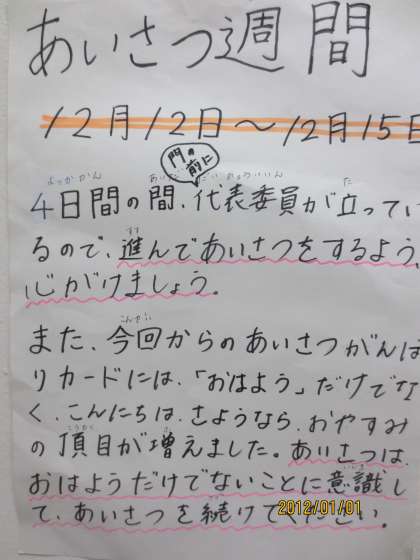 あいさつ週間
12月12日〜12月15日
門の前に
よっかかん あいだ だいひょういいん た
4日間の間、代表委員が立ってい
すす
るので、進んであいさつをするよう
心がけましょう。
こんかい
また、今回からのあいさつがんば
りカードには、「おはよう」だけでな
く、こんにちは、さようなら、おやすみ
こうもく ふ
の項目が増えました。あいさつは、
いしき
おはようだけでないことに意識し
つづ
て、あいさつを続けてください。
2012/01/01